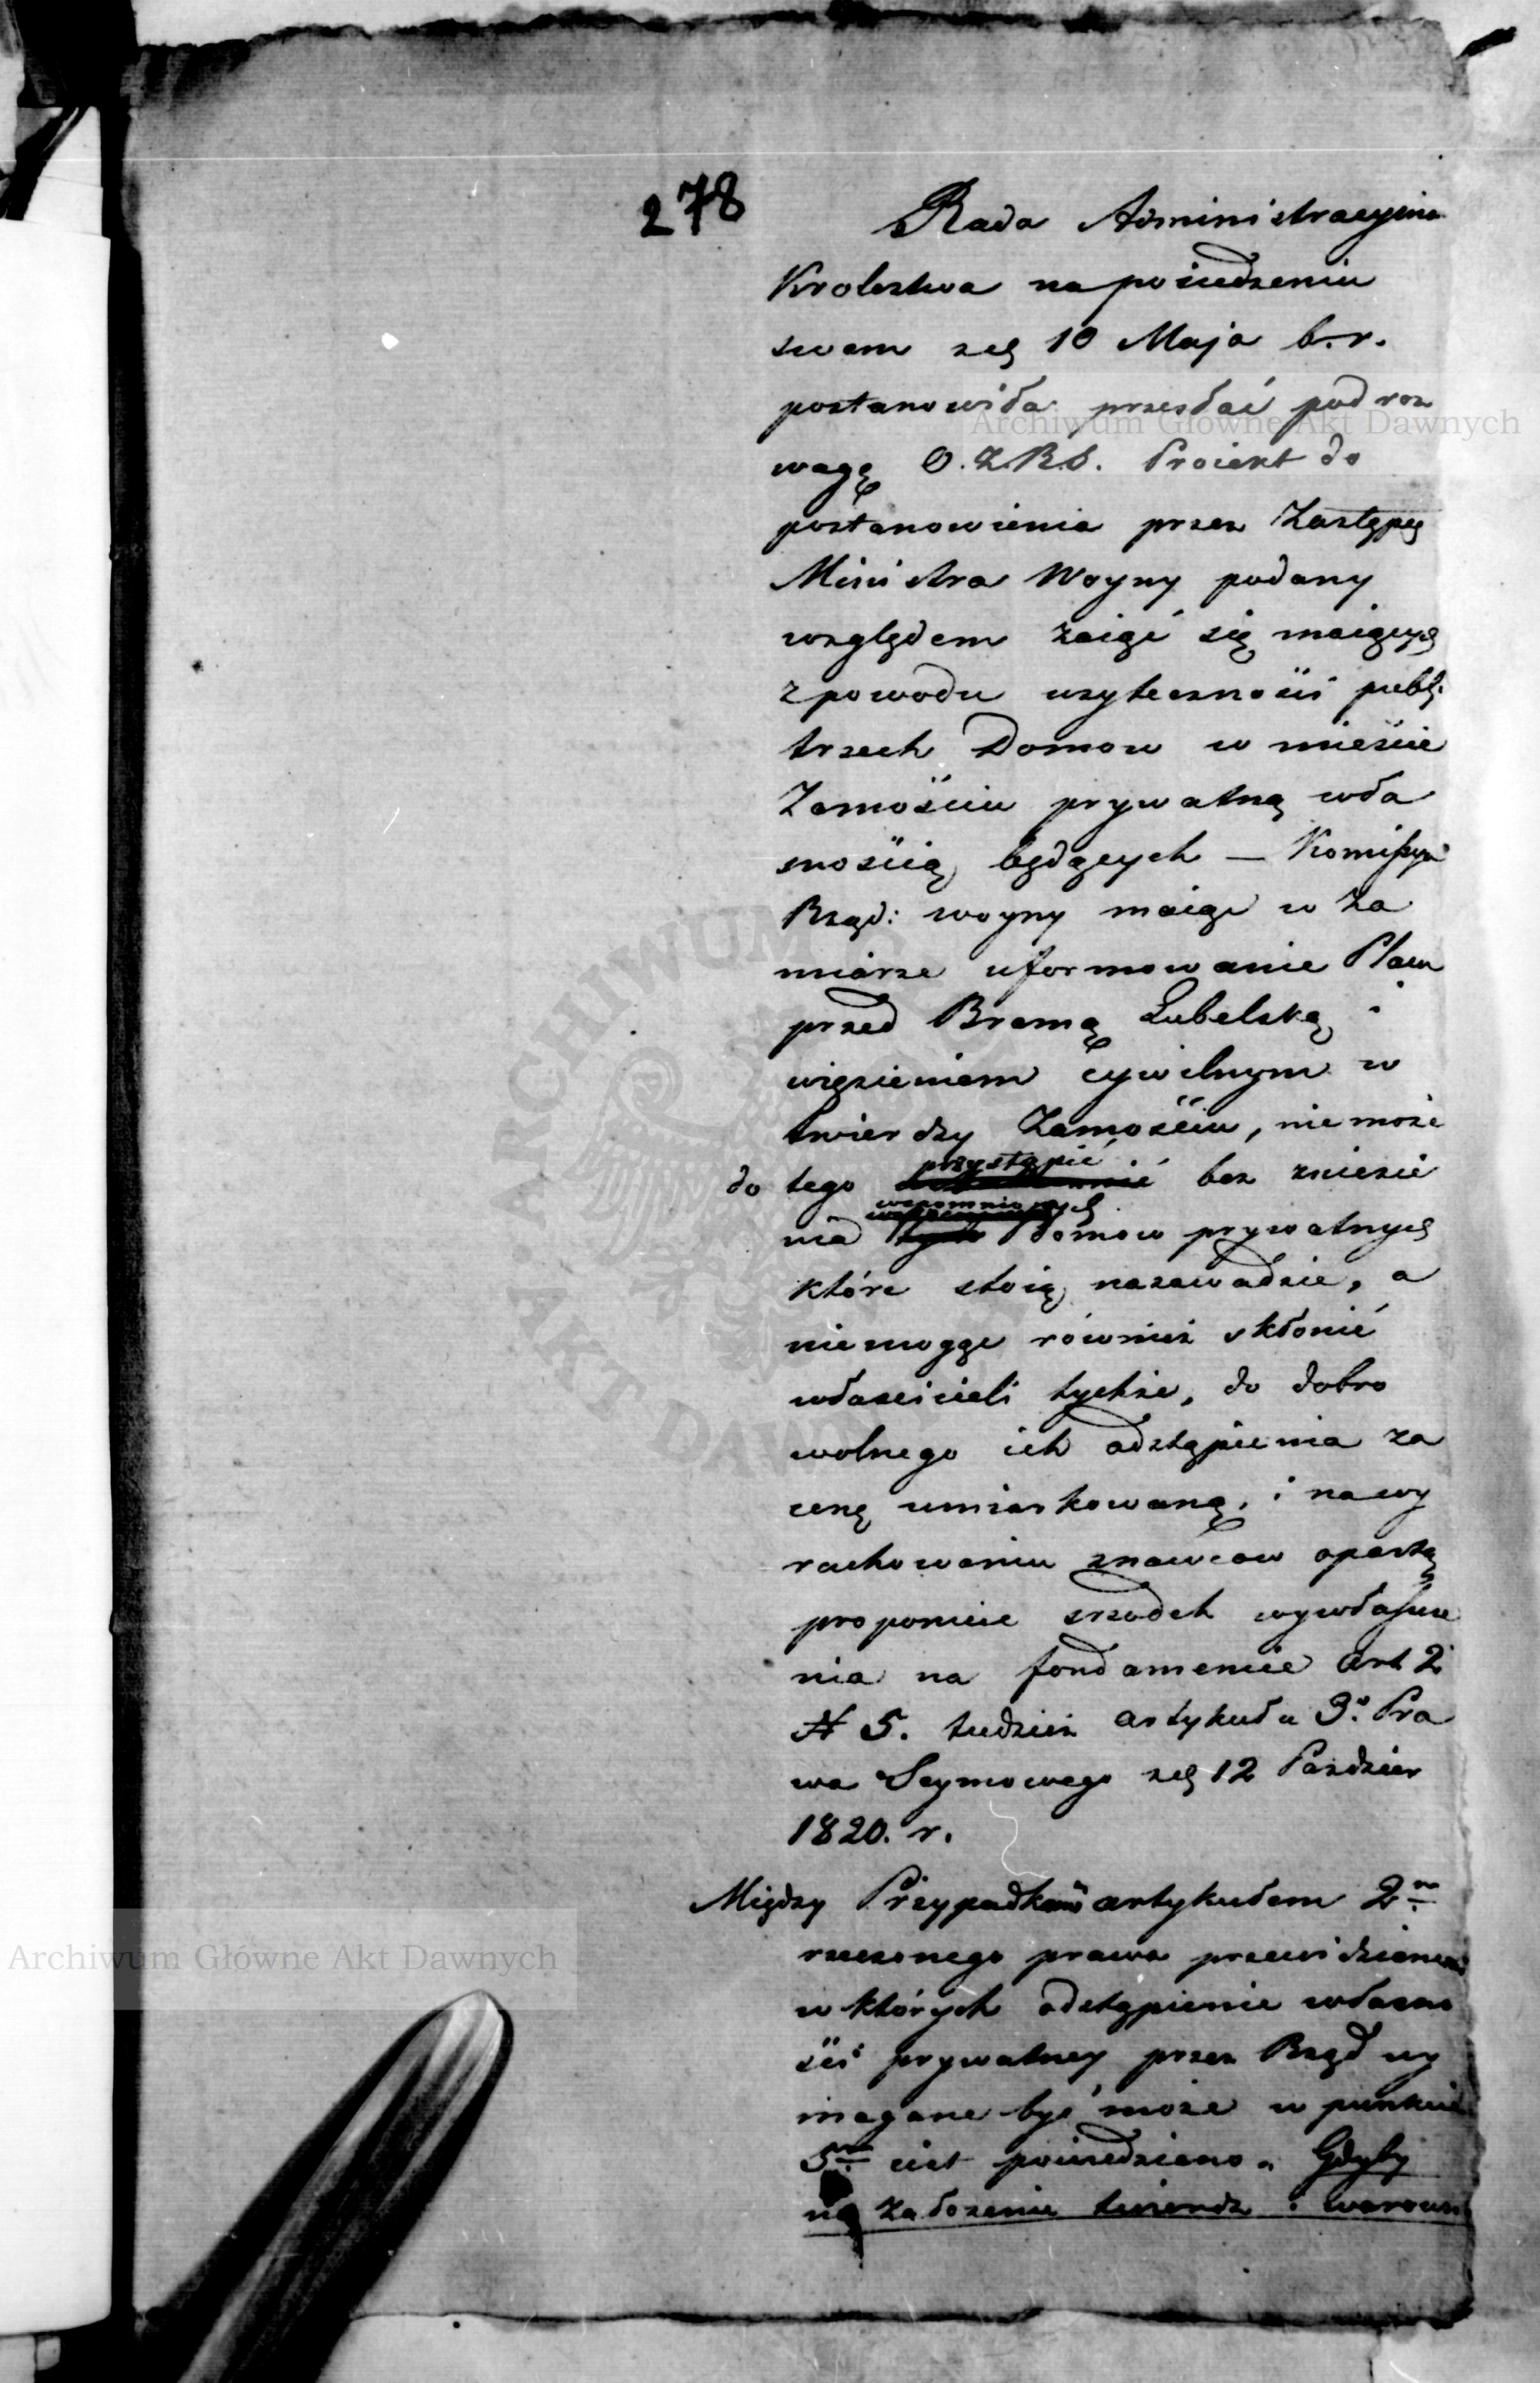 278
Rada Administracyina
Krolestwa na posiedzeniu
swem zeg 10 Maja b.r.
postanowiła przesłać pod roz
wagę O.Z.R.S. Proiekt do
postanowienia przez Zastępcę
Ministra Woyny podany
względem zaiąć się maiących
z powodu uzyteczności publ:
trzech Domow w mieście
Zamościu prywatną wła
snością będących — Kommissya
Rząd: woyny maiąc w za
miarze uformowanie Placu
przed Bramą Lubelską i
więzieniem cywilnym w
twierdzy Zamościu, nie może
do tego przystąpić bez zniesie
nia wspomnionych domow prywatnych
które stoią nazawadzie, a
niemogąc również skłonić
właścicieli tychże, do dobro
wolnego ich odstąpienia za
cenę umiarkowaną, i na wy
rachowaniu znawcow opartą
proponuie srzodek wywłaszcze
nia na fondamencie Art 2
N 5. tudzież artykułu 3º. Pra
wa Seymowego zeg 12 Pazdzier
1820. r.
Między Przypadkami artykułem 2m
rzeczonego prawa przewidzianemi
w których odstąpienie własno
ści prywatney przez Rząd wy
magane być może w punkcie
5m iest powiedziano „ Gdyby
na założenie twierdz i warown
Archiwum Główne Akt Dawnych
Archiwum Główne Akt Dawnych
ARCHIWUM
AKT DAW